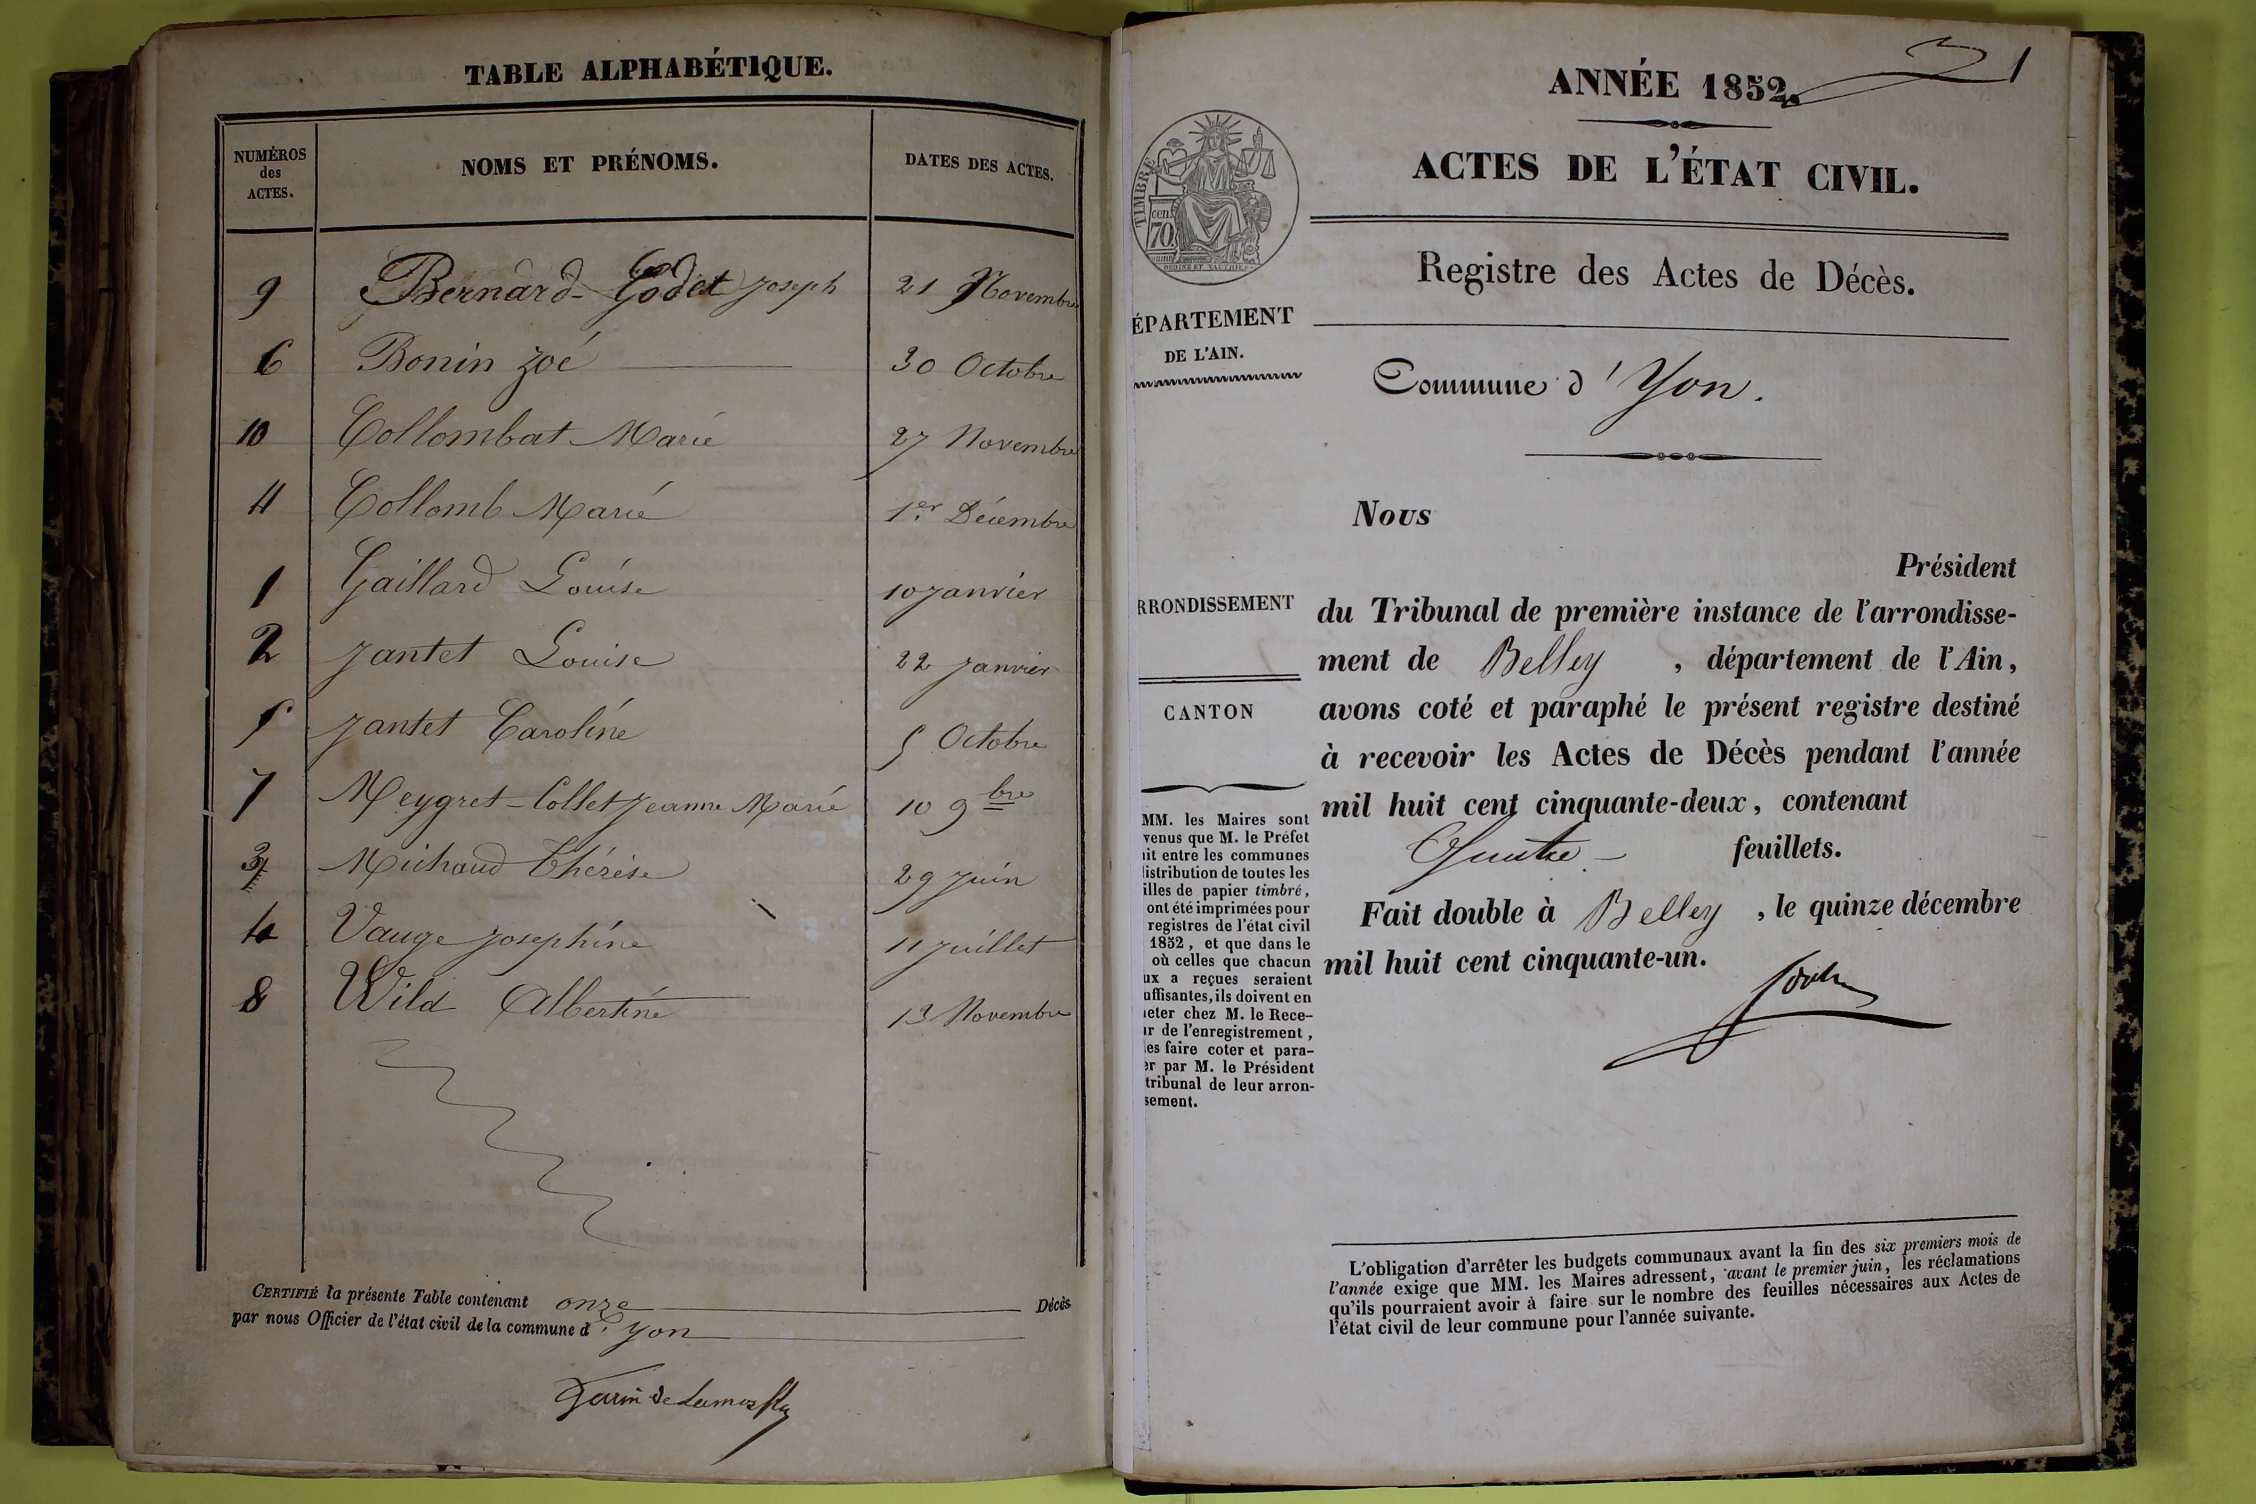 TABLE ALPHABÉTIQUE.
NUMÉROS des ACTES. NOMS ET PRÉNOMS. DATES DES ACTES.
9 Bernard-Godet Joseph 21 Novembre
6 Bonin Zoé 30 Octobre
10 Collombat Marie 27 Novembre
11 Collomb Marie 1er Décembre
1 Gaillard Louise 10 Janvier
2 Jantet Louise 22 Janvier
5 Jantet Caroline 5 Octobre
7 Meygret-Collet Jeanne Marie 10 9bre
3 Michaud Thérèse 29 Juin
4 Vauge Josephine 11 Juillet
8 Wild Albertine 13 Novembre
CERTIFIÉ la présente Table contenant onze Décès
par nous Officier de l'état civil de la commune d'Yon
ANNÉE 1852.
1
ACTES DE L'ÉTAT CIVIL.
TIMBRE
cen. 70
Registre des Actes de Décès.
ÉPARTEMENT
DE L'AIN.
Commune d'Yon.
Nous
Président
RRONDISSEMENT
du Tribunal de première instance de l'arrondisse-
ment de Belley, département de l'Ain,
CANTON
avons coté et paraphé le présent registre destiné
à recevoir les Actes de Décès pendant l'année
mil huit cent cinquante-deux, contenant
Quatre feuillets.
Fait double à Belley, le quinze décembre
mil huit cent cinquante-un.
MM. les Maires sont
venus que M. le Préfet
ait entre les communes
istribution de toutes les
illes de papier timbré,
ont été imprimées pour
registres de l'état civil
1852, et que dans le
où celles que chacun
ux a reçues seraient
uffisantes, ils doivent en
heter chez M. le Rece-
ur de l'enregistrement,
les faire coter et para-
er par M. le Président
tribunal de leur arron-
sement.
L'obligation d'arrêter les budgets communaux avant la fin des six premiers mois de
l'année exige que MM. les Maires adressent, avant le premier juin, les réclamations
qu'ils pourraient avoir à faire sur le nombre des feuilles nécessaires aux Actes de
l'état civil de leur commune pour l'année suivante.